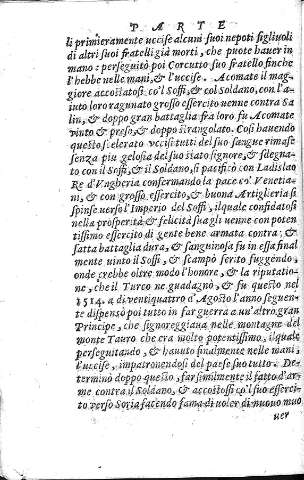 PARTE
li primieramente uccise alcuni suoi nepoti figliuoli
di altri suoi fratelli già morti, che puote hauer in
mano: perseguitò poi Corcutio suo fratello finche
l'hebbe nelle mani, & l'uccise. Acomate il mag-
giore accostatosi co'l Soffi, & col Soldano, con l'a-
iuto loro ragunato grosso essercito uenne contra Sa
lin, & doppo gran battaglia fra loro fu Acomate
uinto & preso, & doppo strangolato. Così hauendo
questo scelerato uccisi tutti del suo sangue rimase
senza piu gelosia del suo stato signore, & sdegna-
to con il Soffi, & il Soldano, si pacificò con Ladislao
Re d'Vngheria confermando la pace co' Venetia-
ni, & con grosso essercito, & buona Artiglieria si
spinse uerso l'Imperio del Soffi, ilquale confidatosi
nella prosperità & felicità sua gli uenne con poten
tissimo essercito di gente bene armata contra; &
fatta battaglia dura, & sanguinosa fu in essa final
mente uinto il Soffi, & scampò ferito fuggendo,
onde crebbe oltre modo l'honore, & la riputatio-
ne, che il Turco ne guadagnò, & fu questo nel
1514. a di uentiquattro d'Agosto l'anno seguen-
te dispensò poi tutto in far guerra a un'altro gran
Principe, che signoreggiaua nelle montagne del
monte Tauro che era molto potentissimo, il quale
perseguitando, & hauuto finalmente nelle mani,
l'uccise, impatronendosi del paese suo tutto. De-
terminò doppo questo, far similmente il fatto d'ar
me contra il Soldano, & accostossi co'l suo esserci-
to uerso Soria facendo fama di uoler di nuouo muo
uer